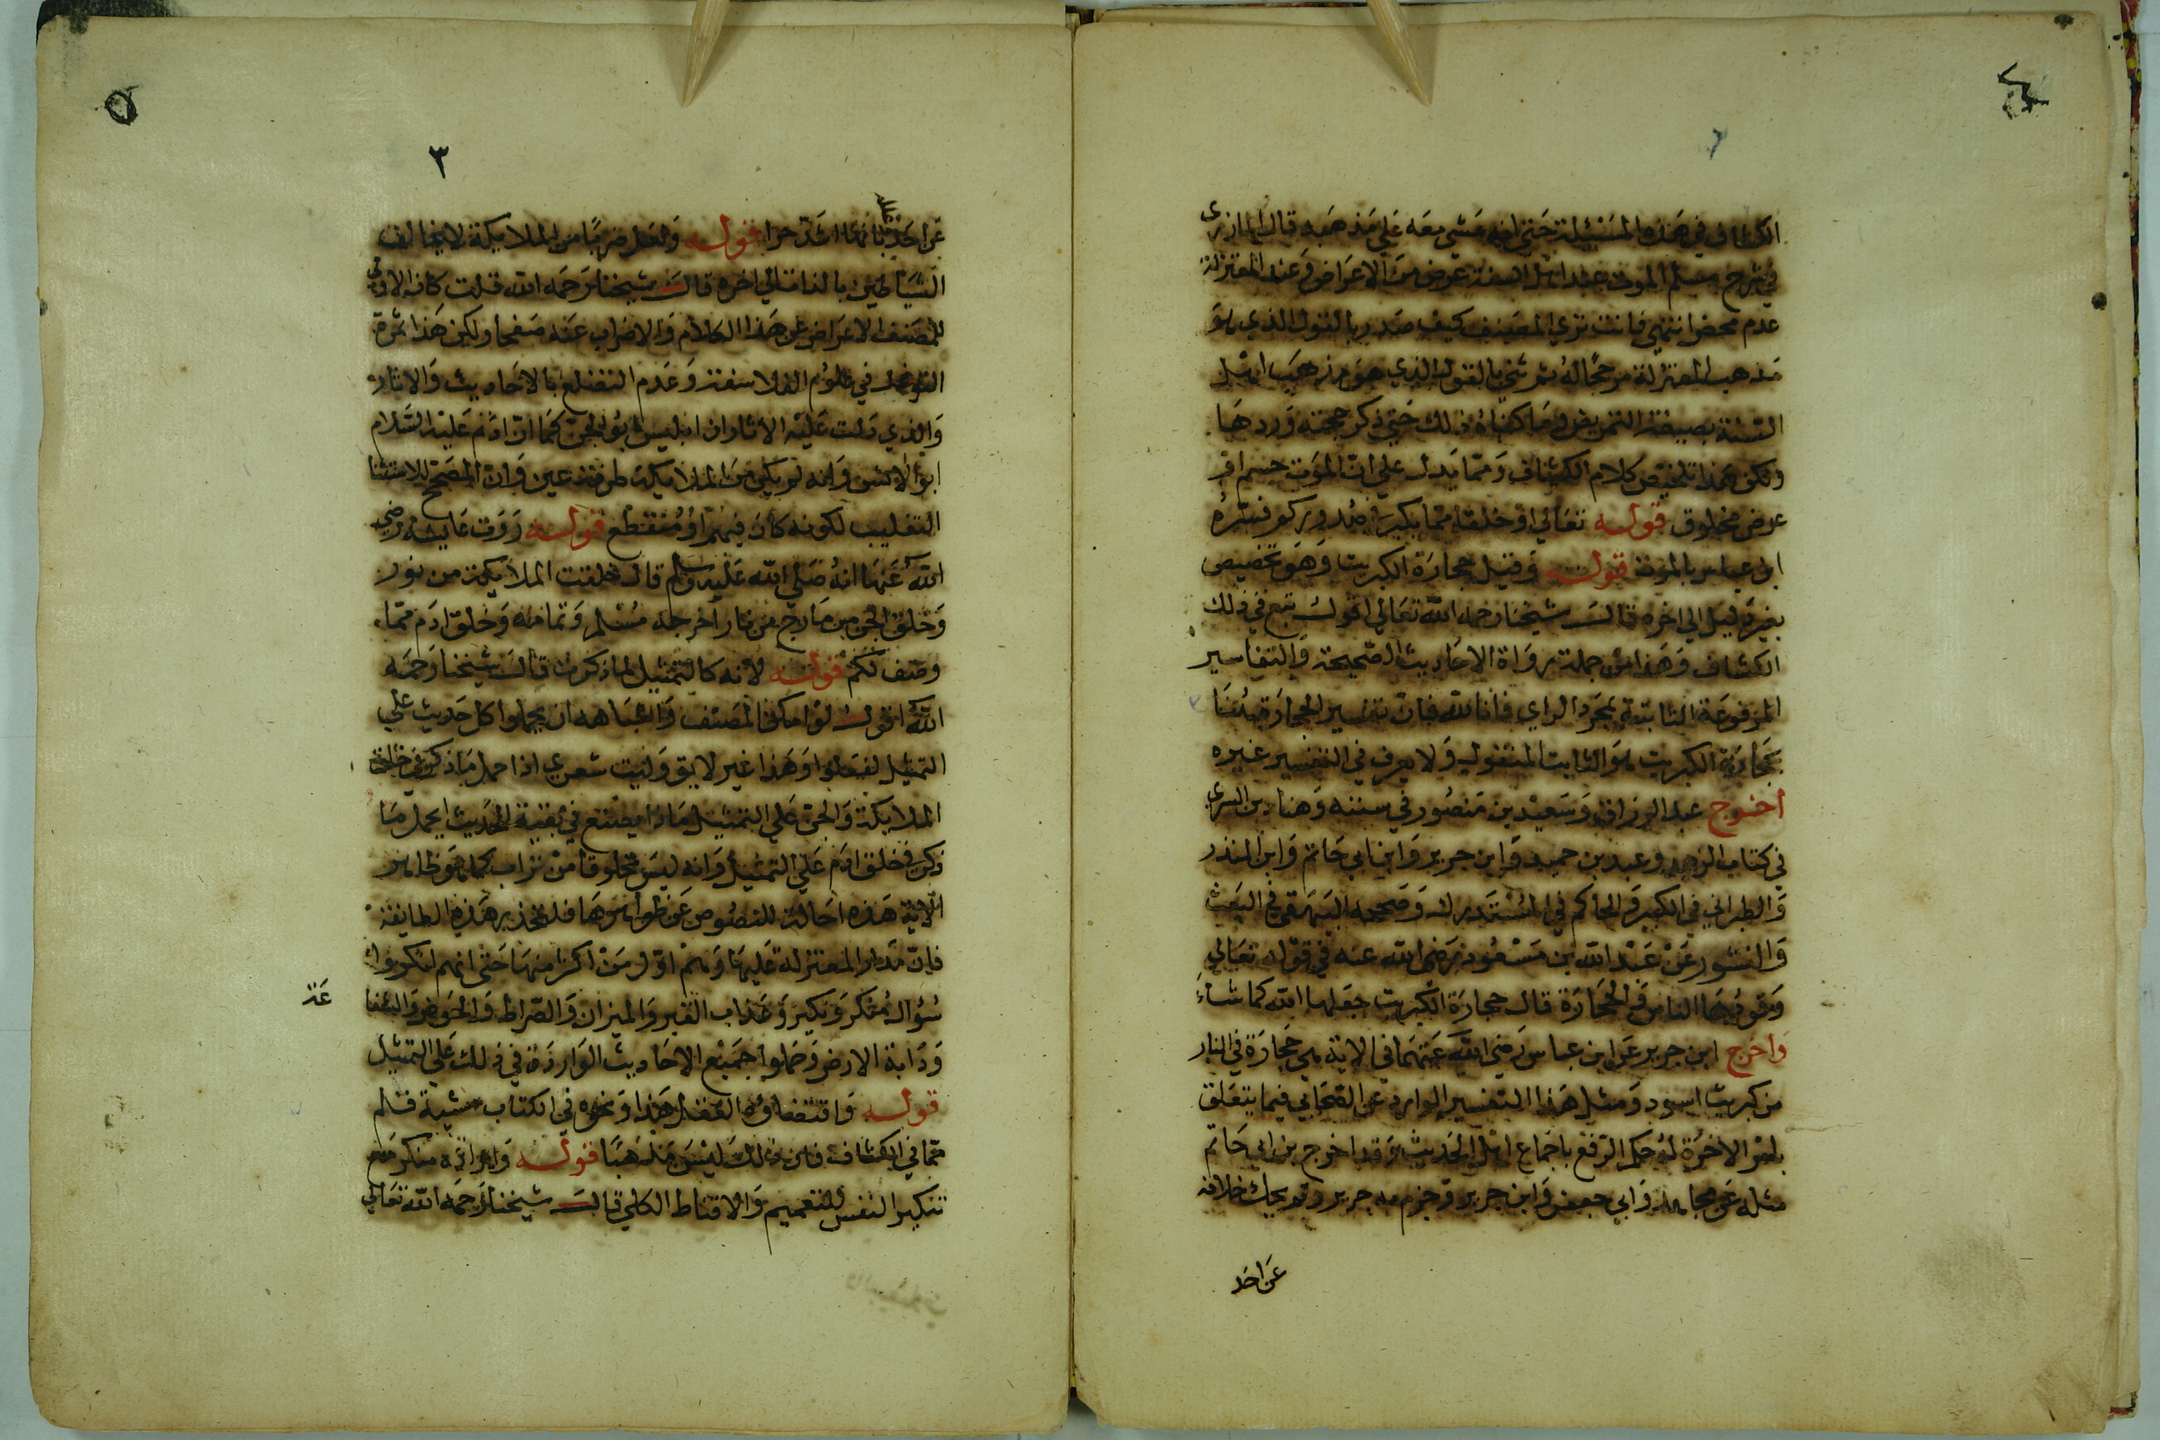 الكشاف في هذه المسئلة حتى انه مشي معه على مذهبه قال المازري
في شرح مسلم الموت عند اهل السنة عرض من الاعراض وعند المعتزلة
عدم محض انتهى فانت ترى المصنف كيف صدر بالقول الذي هو
مذهب المعتزلة مرجحا له ثم ثنى بالقول الذي هو مذهب اهل
السنة بصيغة التمريض وما كفاه ذلك حتى ذكر حجته وردها
ولكن هذا تلخيص كلام الكشاف ومما يدل على ان الموت جسم او
عرض مخلوق قوله تعالى او خلقا مما يكبر في صدوركم فسره
ابن عباس بالموت قوله وقيل حجارة الكبريت وهو تخصيص
بغير دليل الى اخره قالت شيخنا رحمه الله تعالى اقول تبع في ذلك
الكشاف وهذا من جملة رواة الاحاديث الصحيحة والتفاسير
المرفوعة الثابتة بمجرد الراي فانا لله فان تفسير الحجارة هنا
بحجارة الكبريت هو الثابت المنقول ولا يعرف في التفسير غيره
اخرج عبد الرزاق وسعيد بن منصور في سننه وهناد بن السري
في كتاب الزهد وعبد بن حميد وابن جرير وابن ابي حاتم وابن المنذر
والطبراني في الكبير والحاكم في المستدرك وصححه البيهقي في البعث
والنشور عن عبد الله بن مسعود رضي الله عنه في قوله تعالى
وقودها الناس والحجارة قال حجارة الكبريت جعلها الله كما شاء
واخرج ابن جرير عن ابن عباس رضي الله عنهما في الاية هي حجارة في النار
من كبريت اسود ومثل هذا التفسير الوارد عن الصحابي فيما يتعلق
بامر الاخرة له حكم الرفع باجماع اهل الحديث وقد اخرج بن ابي حاتم
مثله عن مجاهد وابي جعفر وابن جرير وجزم به جرير ولم يحك خلافه
عن احد
٥
٣
قوله ولعل ضربا من الملائكة لا يخالف
الشياطين بالذات الى اخره قالت شيخنا رحمه الله قلت كان الاولى
للمصنف الاعراض عن هذا الكلام والاضراب عنه صفحا ولكن هذا ثمرة
التوغل في علوم الفلاسفة وعدم التضلع بالاحاديث والاثار
والذي دلت عليه الاثار ان ابليس ابو الجن كما ان ادم عليه السلام
ابو الانس وانه لم يكن من الملائكة طرفة عين وان المصحح للاستثنا
التغليب لكونه كان فيهم او منقطع قوله روت عايشة رضي
الله عنها انه صلى الله عليه وسلم قال خلقت الملائكة من نور
وخلق الجن من مارج من نار اخرجه مسلم وتمامه وخلق ادم مما
وصف لكم قوله لانه كالتمثيل لما ذكرت قالت شيخنا رحمه
الله اقول لو امكن المصنف واشباهه ان يحملوا كل حديث على
التمثيل لفعلوا وهذا غير لايق وليت شعري اذا حمل ما ذكر في خلق
الملائكة والجن على التمثيل ماذا يصنع في بقية الحديث ايحمل ما
ذكر في خلق ادم على التمثيل وانه ليس مخلوقا من تراب كما هو ظاهر
الاية هذه احالة للنصوص عن ظواهرها فلتحذر هذه الطايفة
فان مدار المعتزلة عليها وهم اول من اكثر منها حتى انهم انكروا
سؤال منكر ونكير وعذاب القبر والميزان والصراط والحوض والشفا
عة
ودابة الارض وحملوا جميع الاحاديث الواردة في ذلك على التمثيل
قوله واقتضاؤه العقل هذا ونحوه في الكتاب مشيه قلم
مما في الكشاف فان ذلك ليس مذهبنا قوله وايراده منكر مع
تنكير النفس للتعميم والاقناط الكلي قالت شيخنا رحمه الله تعالى